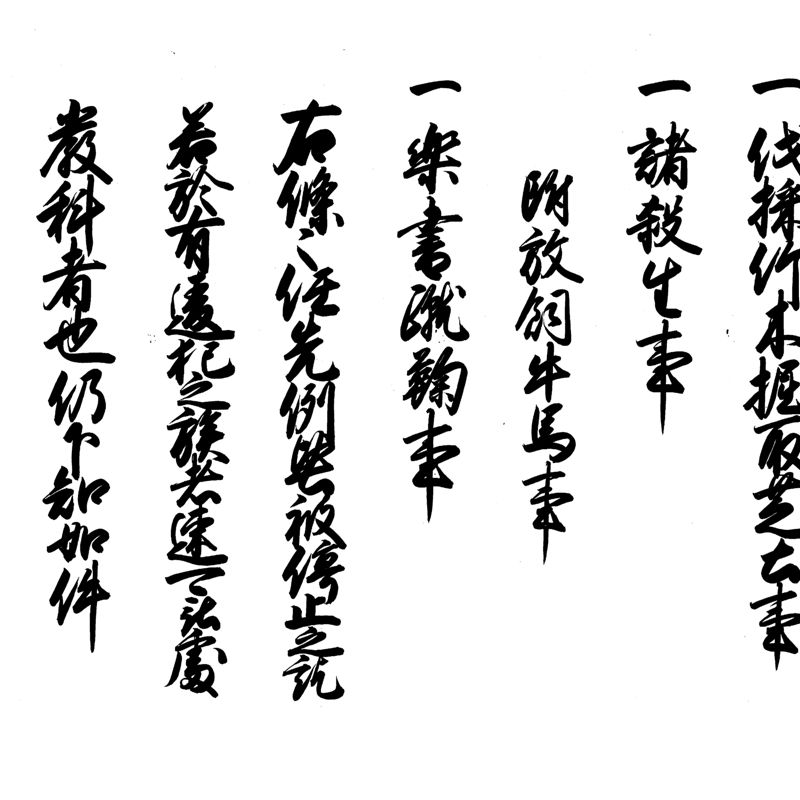 一 伐採竹木掘取芝土事
一 諸殺生事
附放飼牛馬事
一 楽書蹴鞠事
右條々任先例堅被停止之訖
若於有違犯之族者速可被處
嚴科者也仍下知如件